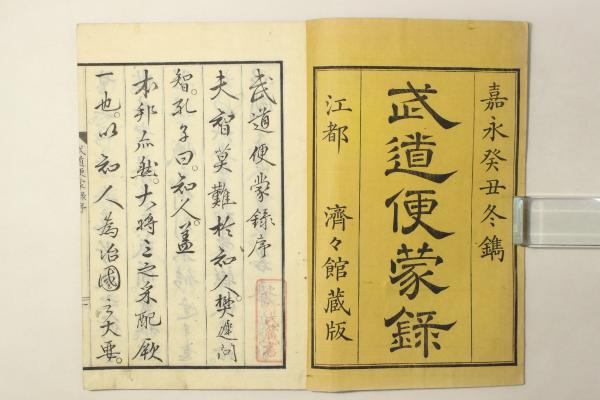 嘉永癸丑冬鐫
武道便蒙錄
江都 濟々館蔵版
武道便蒙録序
夫智莫難於知人。樊遲問
智。孔子曰。知人。蓋
本邦亦然。大将三之采配厥
一也。以知人為治國之大要。